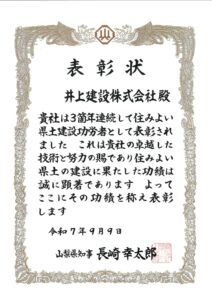 表彰状
井上建設株式会社殿
貴社は3箇年連続して住みよい
県土建設功労者として表彰され
ました　これは貴社の卓越した
技術と努力の賜であり住みよい
県土の建設に果たした功績は
誠に顕著であります　よって
ここにその功績を称え表彰
します
令和7年9月9日
山梨県知事 長崎幸太郎